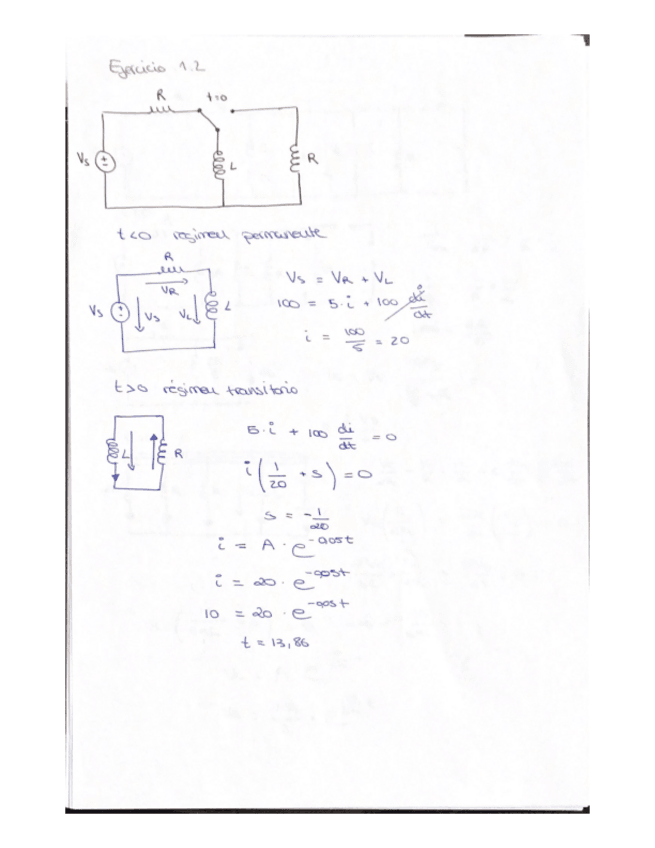 Ejercicio 1.2
R t=0
Vs ± L R
t<0 régimen permanente
R
VR
Vs ± Vs VL L
Vs = VR + VL
100 = 5·i + 100 di/dt 0
i = 100/5 = 20
t>0 régimen transitorio
L R
5·i + 100 di/dt = 0
i (1/20 + s) = 0
s = -1/20
i = A · e^-0,05t
i = 20 · e^-0,05t
10 = 20 · e^-0,05t
t = 13,86